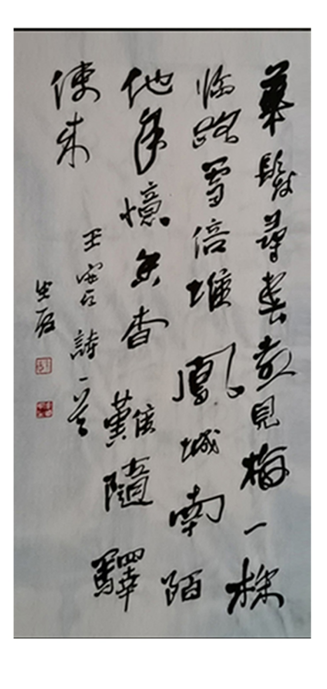 華髮尋春喜見梅一株
臨路雪倍堆鳳城南陌
他年憶香杳難隨驛
使来
王安石詩一首